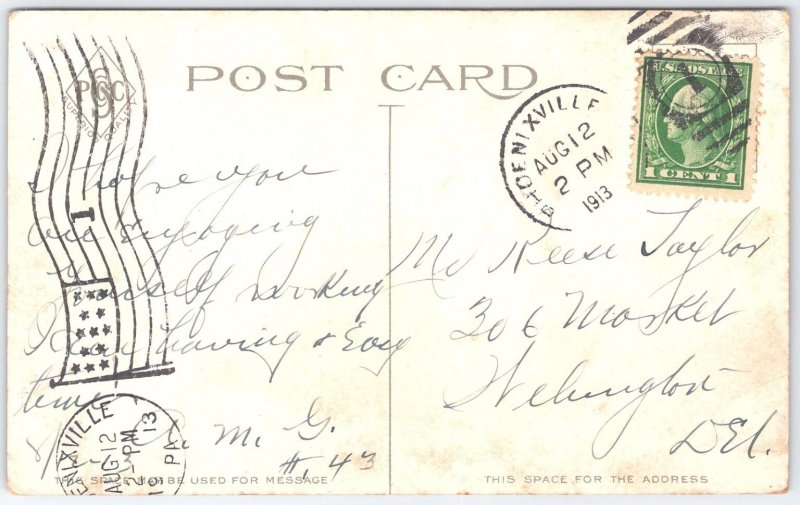 POST CARD
P C
SUPERIOR QUALITY
PHOENIXVILLE
AUG 12
2 PM
1913
U.S. POSTAGE
1 CENT 1
1
I hope you
are Enjoying
yourself working
I am having a Easy
time
R. M. G.
#. 43
Mr Reese Taylor
306 Market
Welmington
Del.
PHOENIXVILLE
AUG 12
2 PM
1913
PA.
THIS SPACE MAY BE USED FOR MESSAGE
THIS SPACE FOR THE ADDRESS